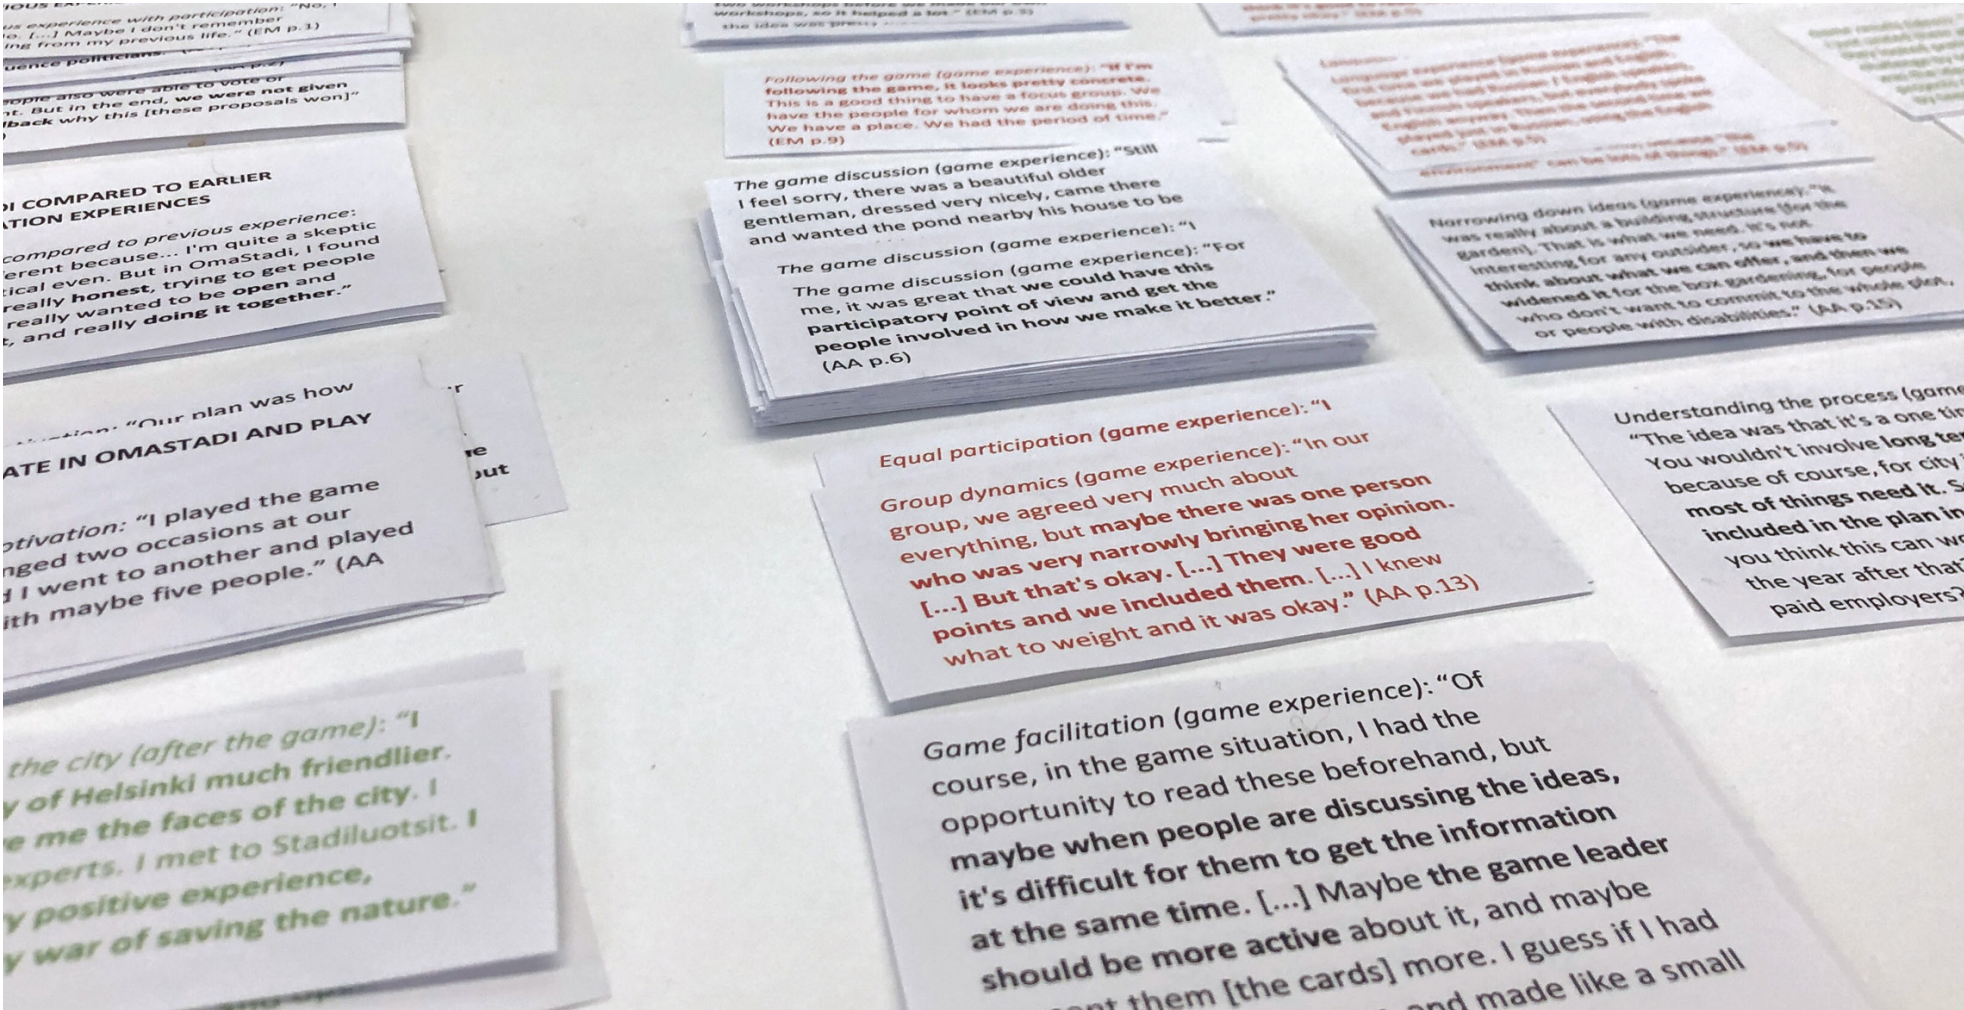 us experience with participation: "No, I
o. [...] Maybe I don't remember
ing from my previous life." (EM p.1)
uence politicians.
eople also were able to vote or
nt. But in the end, we were not given
lback why this [these proposals won]"
DI COMPARED TO EARLIER
TION EXPERIENCES
compared to previous experience:
erent because... I'm quite a skeptic
ical even. But in OmaStadi, I found
really honest, trying to get people
really wanted to be open and
, and really doing it together."
"Our plan was how
ATE IN OMASTADI AND PLAY
otivation: "I played the game
nged two occasions at our
d I went to another and played
ith maybe five people." (AA
the city (after the game): "I
y of Helsinki much friendlier.
e me the faces of the city. I
xperts. I met to Stadiluotsit. I
y positive experience,
y war of saving the nature."
workshops, so it helped a lot." (EM p.5)
the idea was
Following the game (game experience): "If I'm
following the game, it looks pretty concrete.
This is a good thing to have a focus group. We
have the people for whom we are doing this.
We have a place. We had the period of time."
(EM p.9)
The game discussion (game experience): "Still
I feel sorry, there was a beautiful older
gentleman, dressed very nicely, came there
and wanted the pond nearby his house to be
The game discussion (game experience): "I
The game discussion (game experience): "For
me, it was great that we could have this
participatory point of view and get the
people involved in how we make it better."
(AA p.6)
Equal participation (game experience): "I
Group dynamics (game experience): "In our
group, we agreed very much about
everything, but maybe there was one person
who was very narrowly bringing her opinion.
[...] But that's okay. [...] They were good
points and we included them. [...] I knew
what to weight and it was okay." (AA p.13)
Game facilitation (game experience): "Of
course, in the game situation, I had the
opportunity to read these beforehand, but
maybe when people are discussing the ideas,
it's difficult for them to get the information
at the same time. [...] Maybe the game leader
should be more active about it, and maybe
them [the cards] more. I guess if I had
and made like a small
Language experience (game experience): "The
English anyway.
cards."
environment" can be lots of things." (EM p.5)
Narrowing down ideas (game experience): "It
was really about a building structure [for the
garden]. That is what we need. It's not
interesting for any outsider, so we have to
think about what we can offer, and then we
widened it for the box gardening, for people
who don't want to commit to the whole plot,
or people with disabilities." (AA p.15)
Understanding the process (game
"The idea was that it's a one tim
You wouldn't involve long ter
because of course, for city
most of things need it. S
included in the plan in
you think this can wo
the year after that?
paid employers?